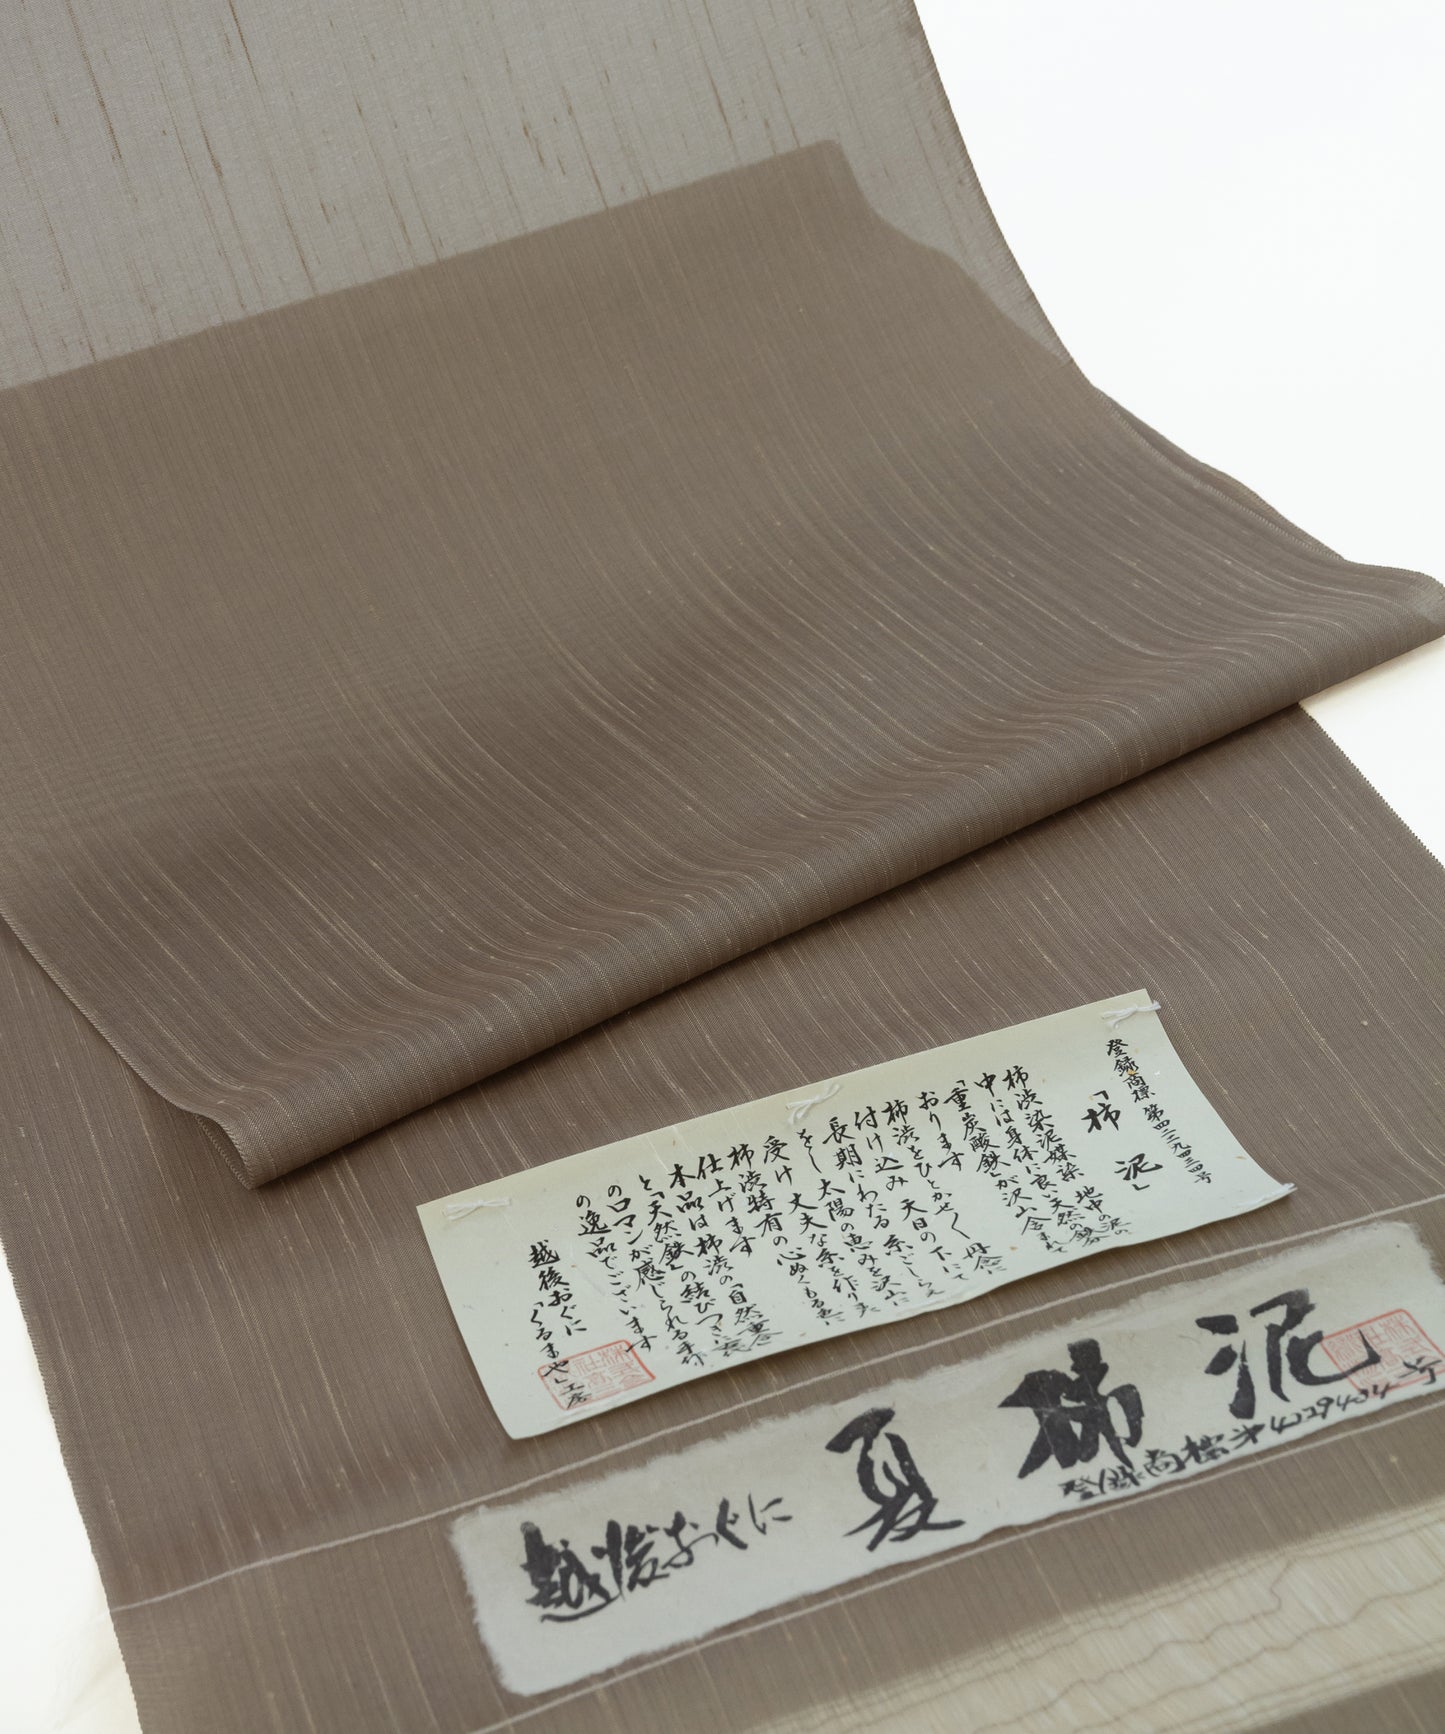 登録商標 第四二二九四三四号
「柿 泥」
柿渋染泥媒染 地中の泥の
中には身体に良い天然の鉄分
「重炭酸鉄」が沢山含まれて
おります
柿渋をひとかせ〱 丹念に
付け込み 天日の下にて
長期にわたる糸ごしらえ
をし太陽の恵みを沢山に
受け 丈夫な糸を作りまた
柿渋特有の心ぬくもる色に
仕上げます
本品は柿渋の「自然重合」
と「天然鉄」の結びつきに
のロマンが感じられる手作
の逸品でございます
越後おぐに
「くるまや」工房
泥
柿
夏
越後おぐに
登録商標第4229434号